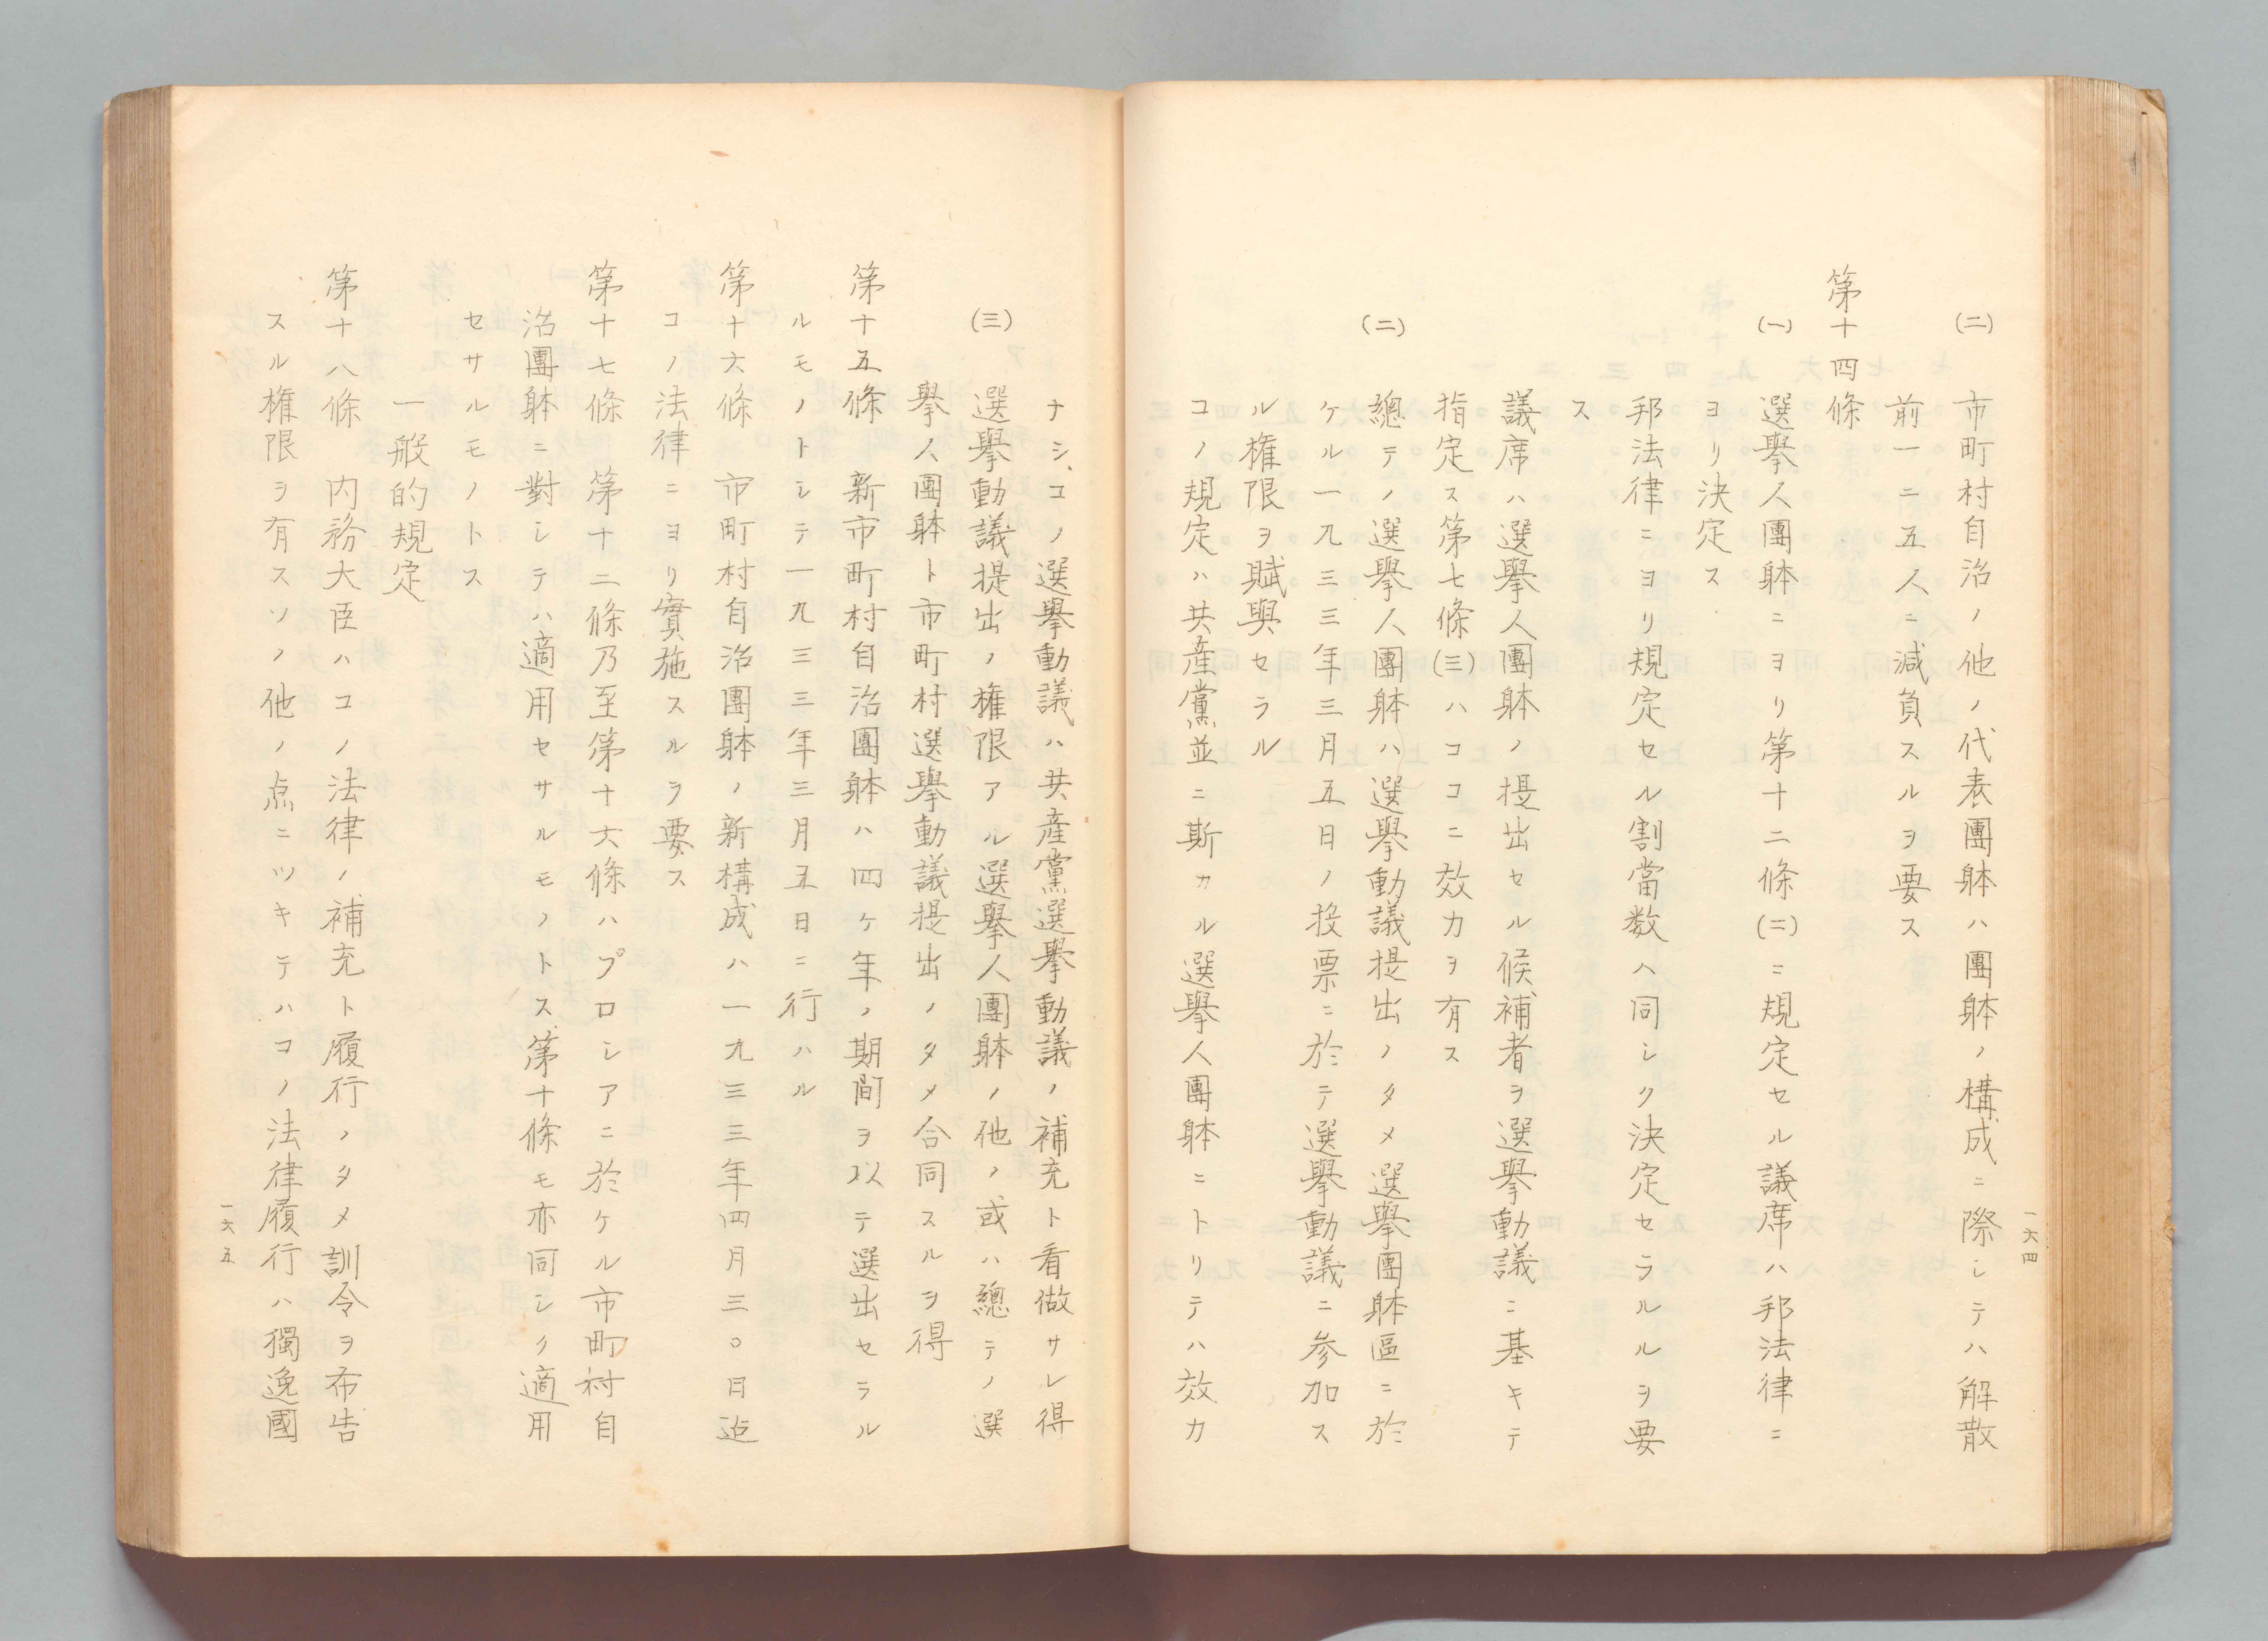 (二) 市町村自治ノ他ノ代表團躰ハ團躰ノ構成ニ際シテハ解散
前一ニ五人ニ減員スルヲ要ス
第十四條
(一) 選擧人團躰ニヨリ第十二條(二)ニ規定セル議席ハ邦法律ニ
ヨリ決定ス
邦法律ニヨリ規定セル割當数ヘ同シク決定セラルルヲ要
ス
議席ハ選擧人團躰ノ提出セル候補者ヲ選擧動議ニ基キテ
指定ス第七條(三)ハココニ效力ヲ有ス
(二) 總テノ選擧人團躰ハ選擧動議提出ノタメ選擧團躰區ニ於
ケル一九三三年三月五日ノ投票ニ於テ選擧動議ニ参加ス
ル権限ヲ賦與セラル
コノ規定ハ共産黨並ニ斯カル選擧人團躰ニトリテハ效力
一六四
ナシ、コノ選擧動議ハ共産黨選擧動議ノ補充ト看做サレ得
(三) 選擧動議提出ノ権限アル選擧人團躰ノ他ノ或ハ總テノ選
擧人團躰ト市町村選擧動議提出ノタメ合同スルヲ得
第十五條 新市町村自治團躰ハ四ケ年ノ期間ヲ以テ選出セラル
ルモノトシテ一九三三年三月五日ニ行ハル
第十六條 市町村自治團躰ノ新構成ハ一九三三年四月三〇日迄
コノ法律ニヨリ實施スルヲ要ス
第十七條 第十二條乃至第十六條ハプロシアニ於ケル市町村自
治團躰ニ對シテハ適用セサルモノトス第十條モ亦同シク適用
セサルモノトス
一般的規定
第十八條 内務大臣ハコノ法律ノ補充ト履行ノタメ訓令ヲ布告
スル権限ヲ有スソノ他ノ点ニツキテハコノ法律履行ハ獨逸國
一六五